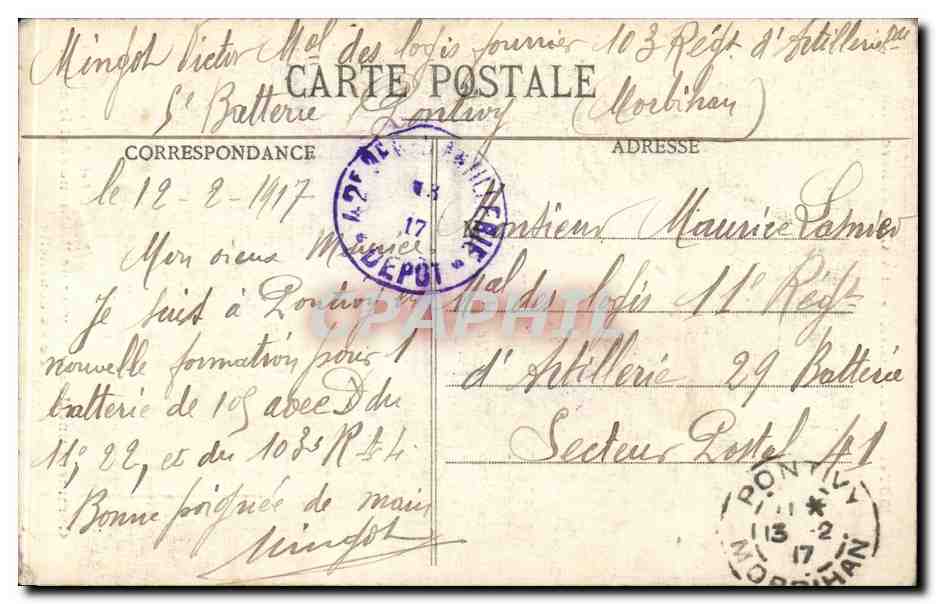 Mingot Victor Mal des logis fourrier 103 Régt d'Artillerie
CARTE POSTALE
5e Batterie Pontivy (Morbihan)
CORRESPONDANCE
ADRESSE
le 12-2-1917
Mon vieux Maurice
Je suis à Pontivy en
nouvelle formation pour 1
batterie de 105 avec D du
11e, 22, et du 103s R
Bonne poignée de main
Mingot
DEPOT
17
Monsieur Maurice Lasnier
Mal des logis 11e Régt
d'Artillerie 29 Batterie
Secteur Postal 41
PONTIVY
13 -2
17
MORBIHAN
CPAPHIL